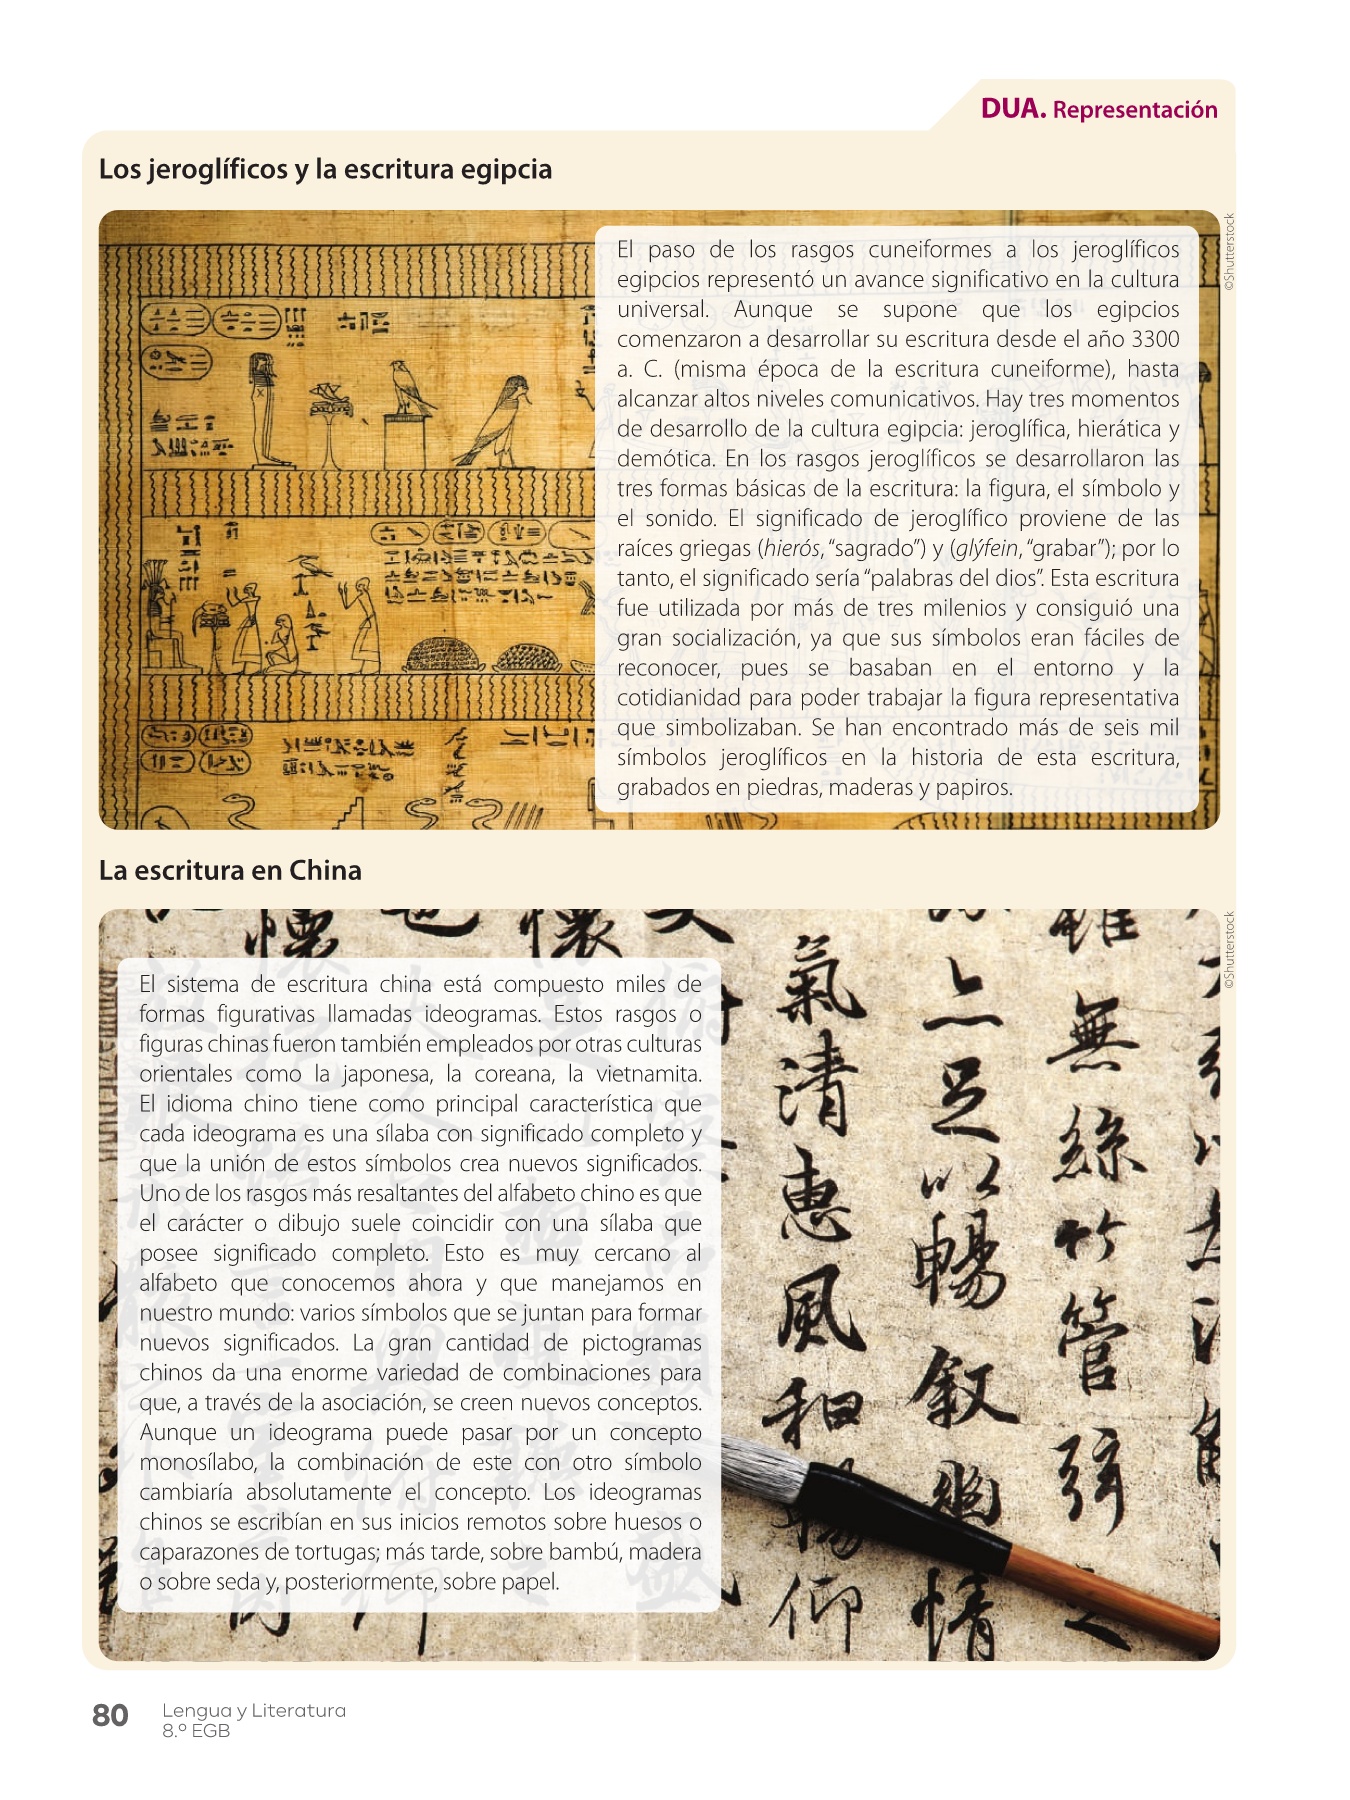 DUA. Representación
Los jeroglíficos y la escritura egipcia
El paso de los rasgos cuneiformes a los jeroglíficos
egipcios representó un avance significativo en la cultura
universal. Aunque se supone que los egipcios
comenzaron a desarrollar su escritura desde el año 3300
a. C. (misma época de la escritura cuneiforme), hasta
alcanzar altos niveles comunicativos. Hay tres momentos
de desarrollo de la cultura egipcia: jeroglífica, hierática y
demótica. En los rasgos jeroglíficos se desarrollaron las
tres formas básicas de la escritura: la figura, el símbolo y
el sonido. El significado de jeroglífico proviene de las
raíces griegas (hierós, “sagrado”) y (glýfein, “grabar”); por lo
tanto, el significado sería “palabras del dios”. Esta escritura
fue utilizada por más de tres milenios y consiguió una
gran socialización, ya que sus símbolos eran fáciles de
reconocer, pues se basaban en el entorno y la
cotidianidad para poder trabajar la figura representativa
que simbolizaban. Se han encontrado más de seis mil
símbolos jeroglíficos en la historia de esta escritura,
grabados en piedras, maderas y papiros.
©Shutterstock
La escritura en China
El sistema de escritura china está compuesto miles de
formas figurativas llamadas ideogramas. Estos rasgos o
figuras chinas fueron también empleados por otras culturas
orientales como la japonesa, la coreana, la vietnamita.
El idioma chino tiene como principal característica que
cada ideograma es una sílaba con significado completo y
que la unión de estos símbolos crea nuevos significados.
Uno de los rasgos más resaltantes del alfabeto chino es que
el carácter o dibujo suele coincidir con una sílaba que
posee significado completo. Esto es muy cercano al
alfabeto que conocemos ahora y que manejamos en
nuestro mundo: varios símbolos que se juntan para formar
nuevos significados. La gran cantidad de pictogramas
chinos da una enorme variedad de combinaciones para
que, a través de la asociación, se creen nuevos conceptos.
Aunque un ideograma puede pasar por un concepto
monosílabo, la combinación de este con otro símbolo
cambiaría absolutamente el concepto. Los ideogramas
chinos se escribían en sus inicios remotos sobre huesos o
caparazones de tortugas; más tarde, sobre bambú, madera
o sobre seda y, posteriormente, sobre papel.
無絲竹管弦
亦足以暢叙幽情
氣清惠風和暢仰
©Shutterstock
80
Lengua y Literatura
8.º EGB